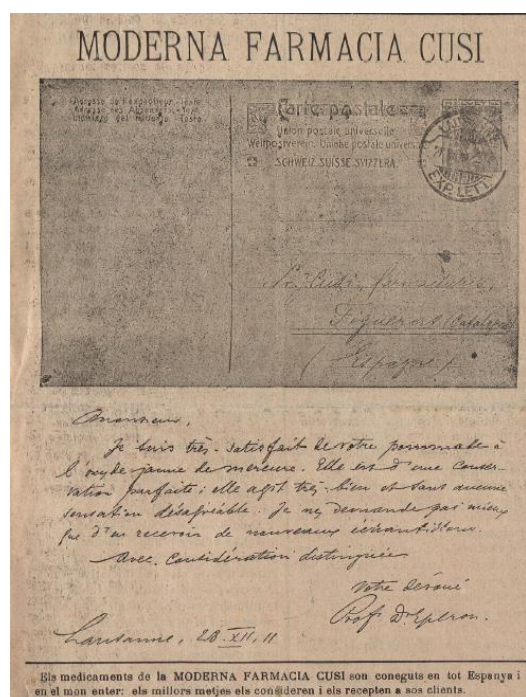 MODERNA FARMACIA CUSI
Carte postale
Union postale universelle
Weltpostverein. Unione postale univers
SCHWEIZ. SUISSE. SVIZZERA.
Sr Cusi,
Figueras (Catalogne)
(Espagne)
Monsieur,
Je suis très-satisfait de votre pommade à
l'oxyde jaune de mercure. Elle est d'une conser-
vation parfaite; elle agit très-bien et sans aucune
sensation désagréable. Je ne demande pas mieux
que d'en recevoir de nouveaux échantillons.
Avec considération distinguée
Votre dévoué
Prof. Dr Eperon.
Lausanne, 28 XII, 11
Els medicaments de la MODERNA FARMACIA CUSI son coneguts en tot Espanya i
en el mon enter: els millors metjes els consideren i els recepten a sos clients.